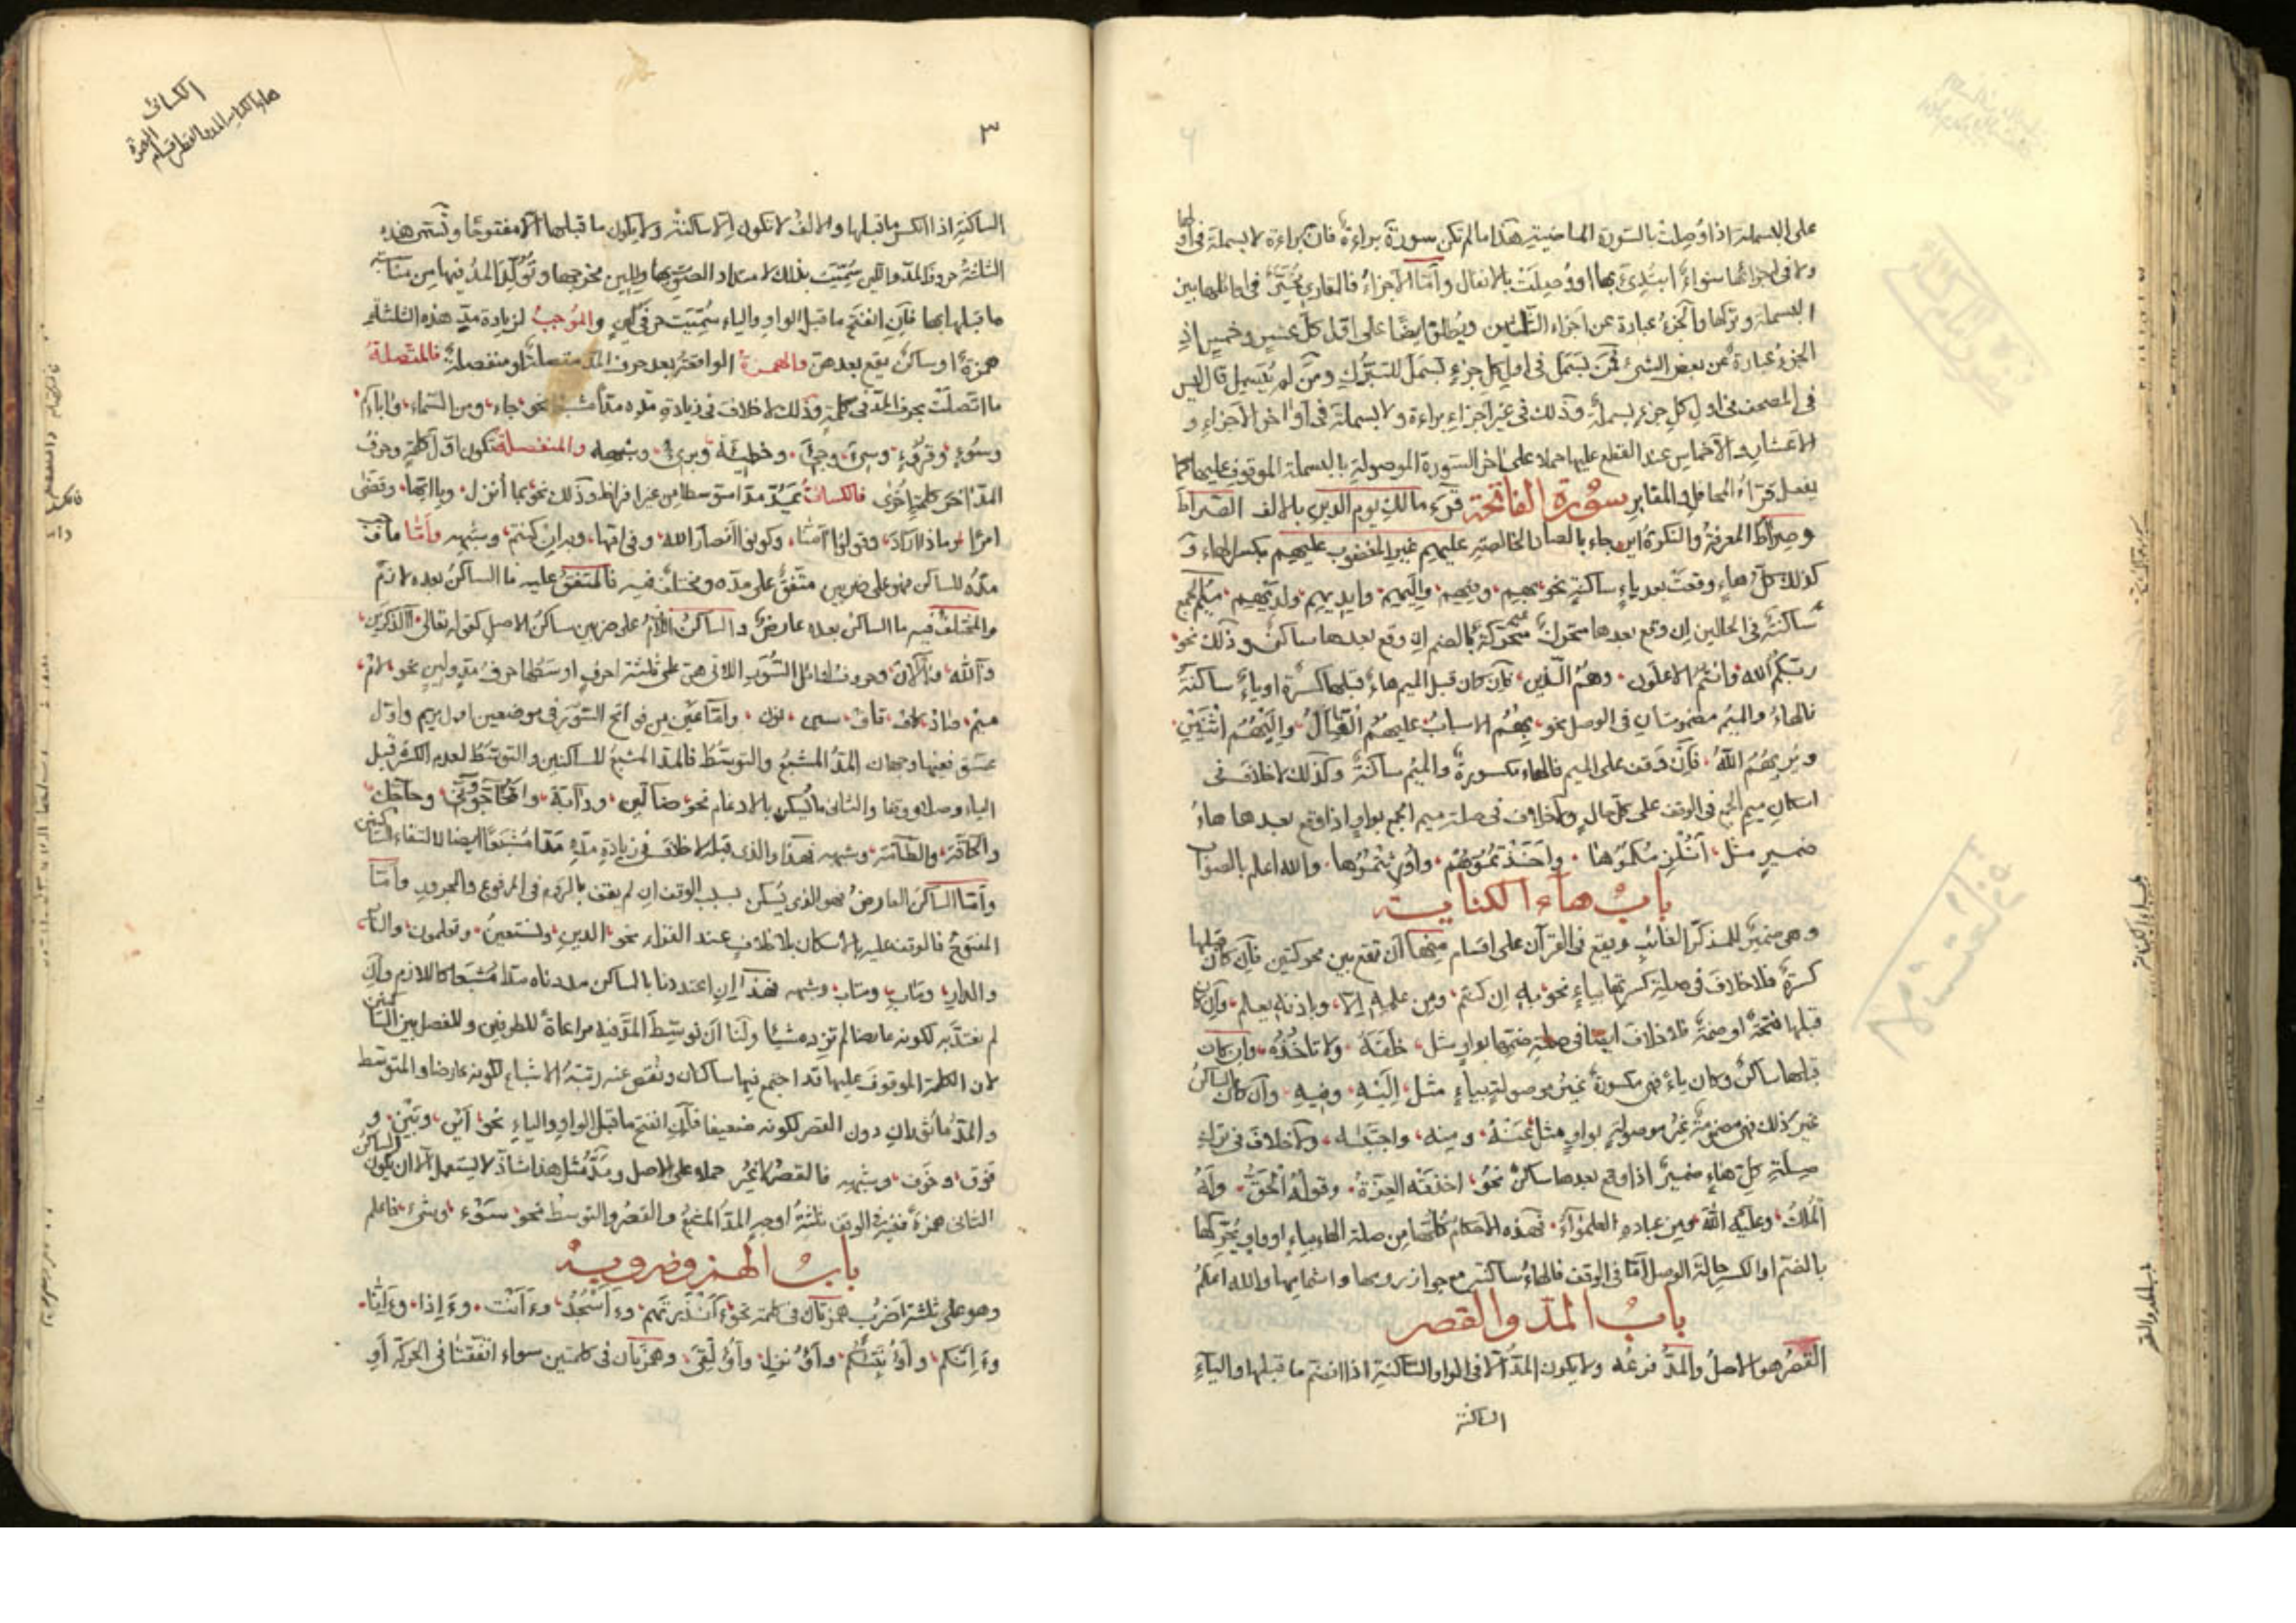 على البسملة اذا وُصِلت بالسّورة الماضية هذا ما لم تكن سورة براءة فان براءة لا بسملة فى اولها
ولا فى اجزائها سواءً ابتُدئ بها او وُصِلَتْ بالانفال وأمّا الاجزاءُ فالقارئ مخيّر فى اوائلها بين
البسملة وتركها والجزءُ عبارة عن اجزاء الثلثين ويُطلق ايضًا على اوّل كلّ عشرٍ وخمسٍ اذِ
الجزءُ عبارةٌ عن بعض الشئ فمَن بَسمَلَ فى اول كل جزءٍ بَسمَلَ للتبرّك ومَن لم يُبسمِل قال ليس
فى المصحف فى اول كل جزءٍ بسملةٌ وذلك فى غير اجزاءِ براءة ولا بسملةَ فى أواخر الاجزاءِ و
الاعشارِ والاخماسِ عند القطع عليها حملا على اخر السّورة الموصولةِ بالبسملة الموقوف عليها كما
يفعل قرّاءُ المحافل والمقابر سورة الفاتحة قرَءَ مالكِ يوم الدين بالالف الصّراطَ
وصراطَ المعرفةُ والنكرةُ اين جاء بالصاد الخالصةِ عليهِم غير المغضوب عليهِم بكسر الهاء و
كذلك كلّ هاءٍ وقعتْ بعد ياءٍ ساكنةٍ نحو وفيهِم واليهِم وايديهِم ولديهِم ميمُ الجمع
ساكنةٌ فى الحالين ان وقع بعدها متحركٌ متحركةٌ بالضم ان وقع بعدها ساكنٌ وذلك نحو
ربّكمُ الله وانتمُ الاعلون وهمُ الّذين فان كان قبل الميم هاءٌ قبلها كسرة او ياءٌ ساكنةٌ
فالهاءُ والميمُ مضمومتان فى الوصل نحو بهُمُ الاسبابُ عليهُمُ القتالُ واليهُمُ اثنينِ
ويُريهُمُ اللهُ فان وَقف على الميم فالهاء مكسورةٌ والميم ساكنةٌ وكذلك لا خلافَ فى
اسكان ميم الجمع فى الوقف على كل حالٍ ولا خلاف فى صلة ميم الجمع بواوٍ اذا وقع بعدها هاءُ
ضميرٍ مثل أنُلْزِمكموها واتّخذتموهم واُورِثتموها والله اعلم بالصواب
بابُ هاءِ الكناية
وهى ضميرٌ للمذكّر الغائبِ ويقع فى القرآن على اقسام منها ان تقع بين محركتين فان كان قبلها
كسرةٌ فلا خلافَ فى صلة كسرتها بياءٍ نحو بهِ ان كنتم ومن علمهِ الّا وباذنه يعلم وان كان
قبلها فتحةٌ او ضمةٌ فلا خلافَ ايضًا فى صلةِ ضمّها بواوٍ مثل خلقَهُ ولا تاخذُهُ وان كان
قبلها ساكنٌ وكان ياءً فهى مكسورةٌ غيرُ موصولةٍ بياءٍ مثل اِلَيْهِ وفيهِ وان كان الساكنُ
غير ذلك فهى مضمومةٌ غيرُ موصولةٍ بواوٍ مثل عنهُ ومنه واجتبٰه ولا خلافَ فى تركِ
صِلَةِ كلّ هاءِ ضميرٍ اذا وقع بعدها ساكنٌ نحو اخذتْه العِزّةُ وقولُهُ الحقّ ولَهُ
المُلكُ وعليهِ اللهَ ومن عبادهِ العلمٰؤا فهذه الاحكام كلّها من صلة الهاء بياءٍ او واوٍ وتحرّكها
بالضمّ او الكسر حالةَ الوصل امّا فى الوقف فالهاءُ ساكنةٌ مع جواز رومها واشمامها والله اعلمُ
بابُ المدّ والقصر
القصْرُ هو الاصلُ والمدّ فرعُه ولا يكون المدّ الّا فى الواو السّاكنةِ اذا انضم ما قبلها والياءِ
الساكنة
٣
الساكنةِ اذا انكسر ما قبلها والالفُ لا تكون الّا ساكنةً ولا يكون ما قبلها الّا مفتوحًا وتُسمّى هذه
الثلثةُ حروف المدّ واللين سُمّيَت بذلك لامتداد الصوتِ بها ولِلِين مخرجها وتولّدَ المدُّ فيها من مناسبة
ما قبلها لها فان انفتح ما قبل الواو والياء سُمّيت حرفَى لينٍ والموجبُ لزيادة مدّ هذه الثلثةِ
همزةٌ او ساكنٌ يقع بعدهنّ والهمزةُ الواقعةُ بعد حرف المدّ متصلةٌ او منفصلةٌ فالمتّصلةُ
ما اتّصلَتْ بحرف المدّ فى كلمة وذلك لا خلافَ فى زيادةِ مدّه مدّاً مشبعًا نحو جاء ومن السّماء واٰباؤكم
وسُوءٍ وقروءٍ وسِىٓءَ وجِىٓءَ وخطيئةً وبرىءٌ وشبهه والمنفصلة تكون اوّل كلمةٍ وحرفُ
المدّ اخرَ كلمةٍ اخرى فالكسائى يَمدّ مدّا متوسّطا من غير افراط وذلك نحو بما أنزل ويا ايّها وقضٰى
امرًا وماذا اَراد وقولوا آمنّا وكونوا اَنصارَ الله وفى امّها وشبهه وأمّا ما وجب
مدُّه للساكن فهو على ضربين متّفَقٌ على مدّه ومختلَفٌ فيه فالمتّفَقُ عليه ما الساكنُ بعده لازمٌ
والمختلَفُ فيه ما الساكنُ بعده عارضٌ والساكنُ اللّازمُ على ضربين ساكنُ الاصلِ كقوله تعالى ءآلذّكرين
وءآلله وءآلآن وحروفُ اوائل السُّوَرِ اللاتى هنّ على ثلثة احرفٍ اوسطها حرفُ مدٍّ ولينٍ نحو لامْ
ميمْ صادْ كافْ قافْ سين نون وامّا عَيْن من فواتح السّوَر فى موضعين اوّل مريم واوّل
عسق ففيها وجهان المدّ المشبعُ والتوسّطُ فالمدّ المشبعُ للساكنين والتوسّطُ لعدم الكسر قبل
الياء وصلا ووقفا والثانى ما سُكّن بالادغام نحو ضالّين ودآبّة واَتُحاجّونّى وحآجّك
والحآقّة والطآمّة وشبهه فهذا والذى قبله لا خلافَ فى زيادةِ مدّه مدّا مُشبَعًا ايضا لالتقاء الساكنين
وأمّا الساكنُ العارضُ فهو الذى يُسكّن بسبب الوقف ان لم يقف بالرّوم فى المرفوع والمجرورِ وأمّا
المفتوحُ فالوقف عليه بالاسكان بلا خلافٍ عند القرّاء نحو الدينِ ونستعينُ وتعلمون والنّاس
والدارِ ومَآبٍ ومتابِ وشبهه فهذا إنِ اعتددنا بالساكن مددناه مدّا مُشبَعًا كاللازم وان
لم نعتدّ به لكونه عارضا لم نزِد مدّ شيئا ولنا ان نوسّط المدّ فيه مراعاةً للطرفين وللفصل بين الساكنين
لان الكلمة الموقوفَ عليها قد اجتمع فيها ساكنان ونُقِص عنه رتبةُ الاشباع لكونه عارضا والمتوسّط
والمدُّ دون القصر لكونه ضعيفا فان انفتح ما قبل الواو والياءِ نحو أينَ وبَيْن و
فَوْق وخَوْف وشبهه فالقصرُ لا غيرُ حملا على الاصل ومدُّ مثل هذا شاذٌّ لا يُستعمل الّا ان يكون الساكنُ
الثانى همزةً ففى الوقف ثلثةُ اوجهٍ المدُّ المشبعُ والقصْرُ والتوسّطُ نحو سَوْء وشَىْء فاعلم
بابُ الهمز وضروبه
وهو على ثلثة اَضرُب همزتان فى كلمة نحو ءَأنذرتهم وءَأسجُدُ وءَأنت وءَإذا وءَإنّا
وءَإنّكم وأؤنبّئكم وأءُنزل وأءُلقى وهمزتان فى كلمتين سواء اتفقتا فى الحركة أو